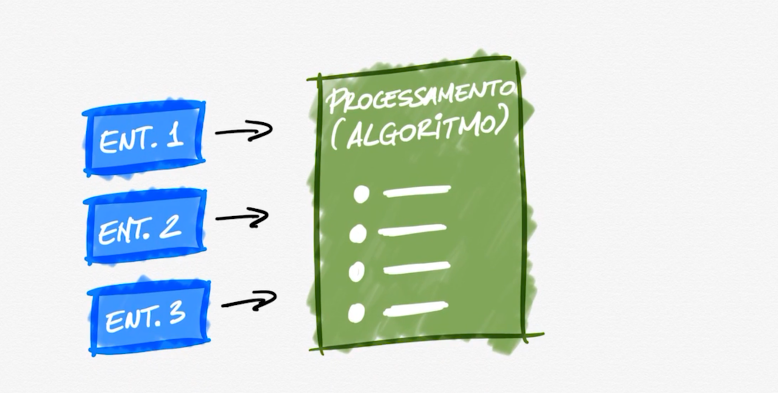 ENT. 1
ENT. 2
ENT. 3
PROCESSAMENTO
(ALGORITMO)